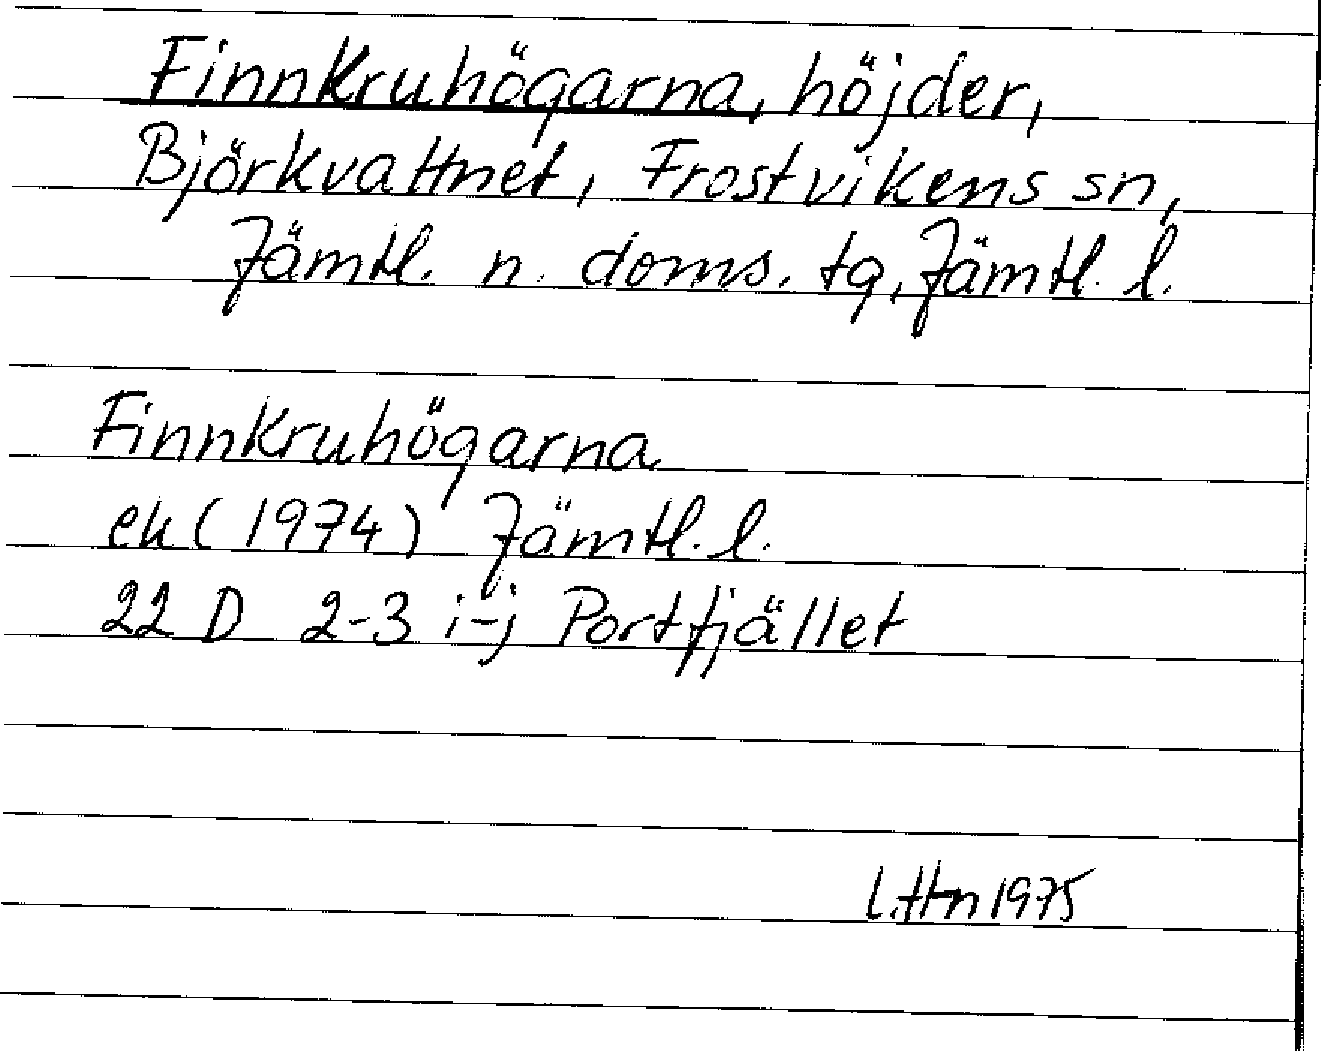 Finnkruhögarna, höjder,
Björkvattnet, Frostvikens sn,
Jämtl. n. doms. tg, Jämtl. l.
Finnkruhögarna
ek (1974) Jämtl. l.
22 D 2-3 i-j Portfjället
1975